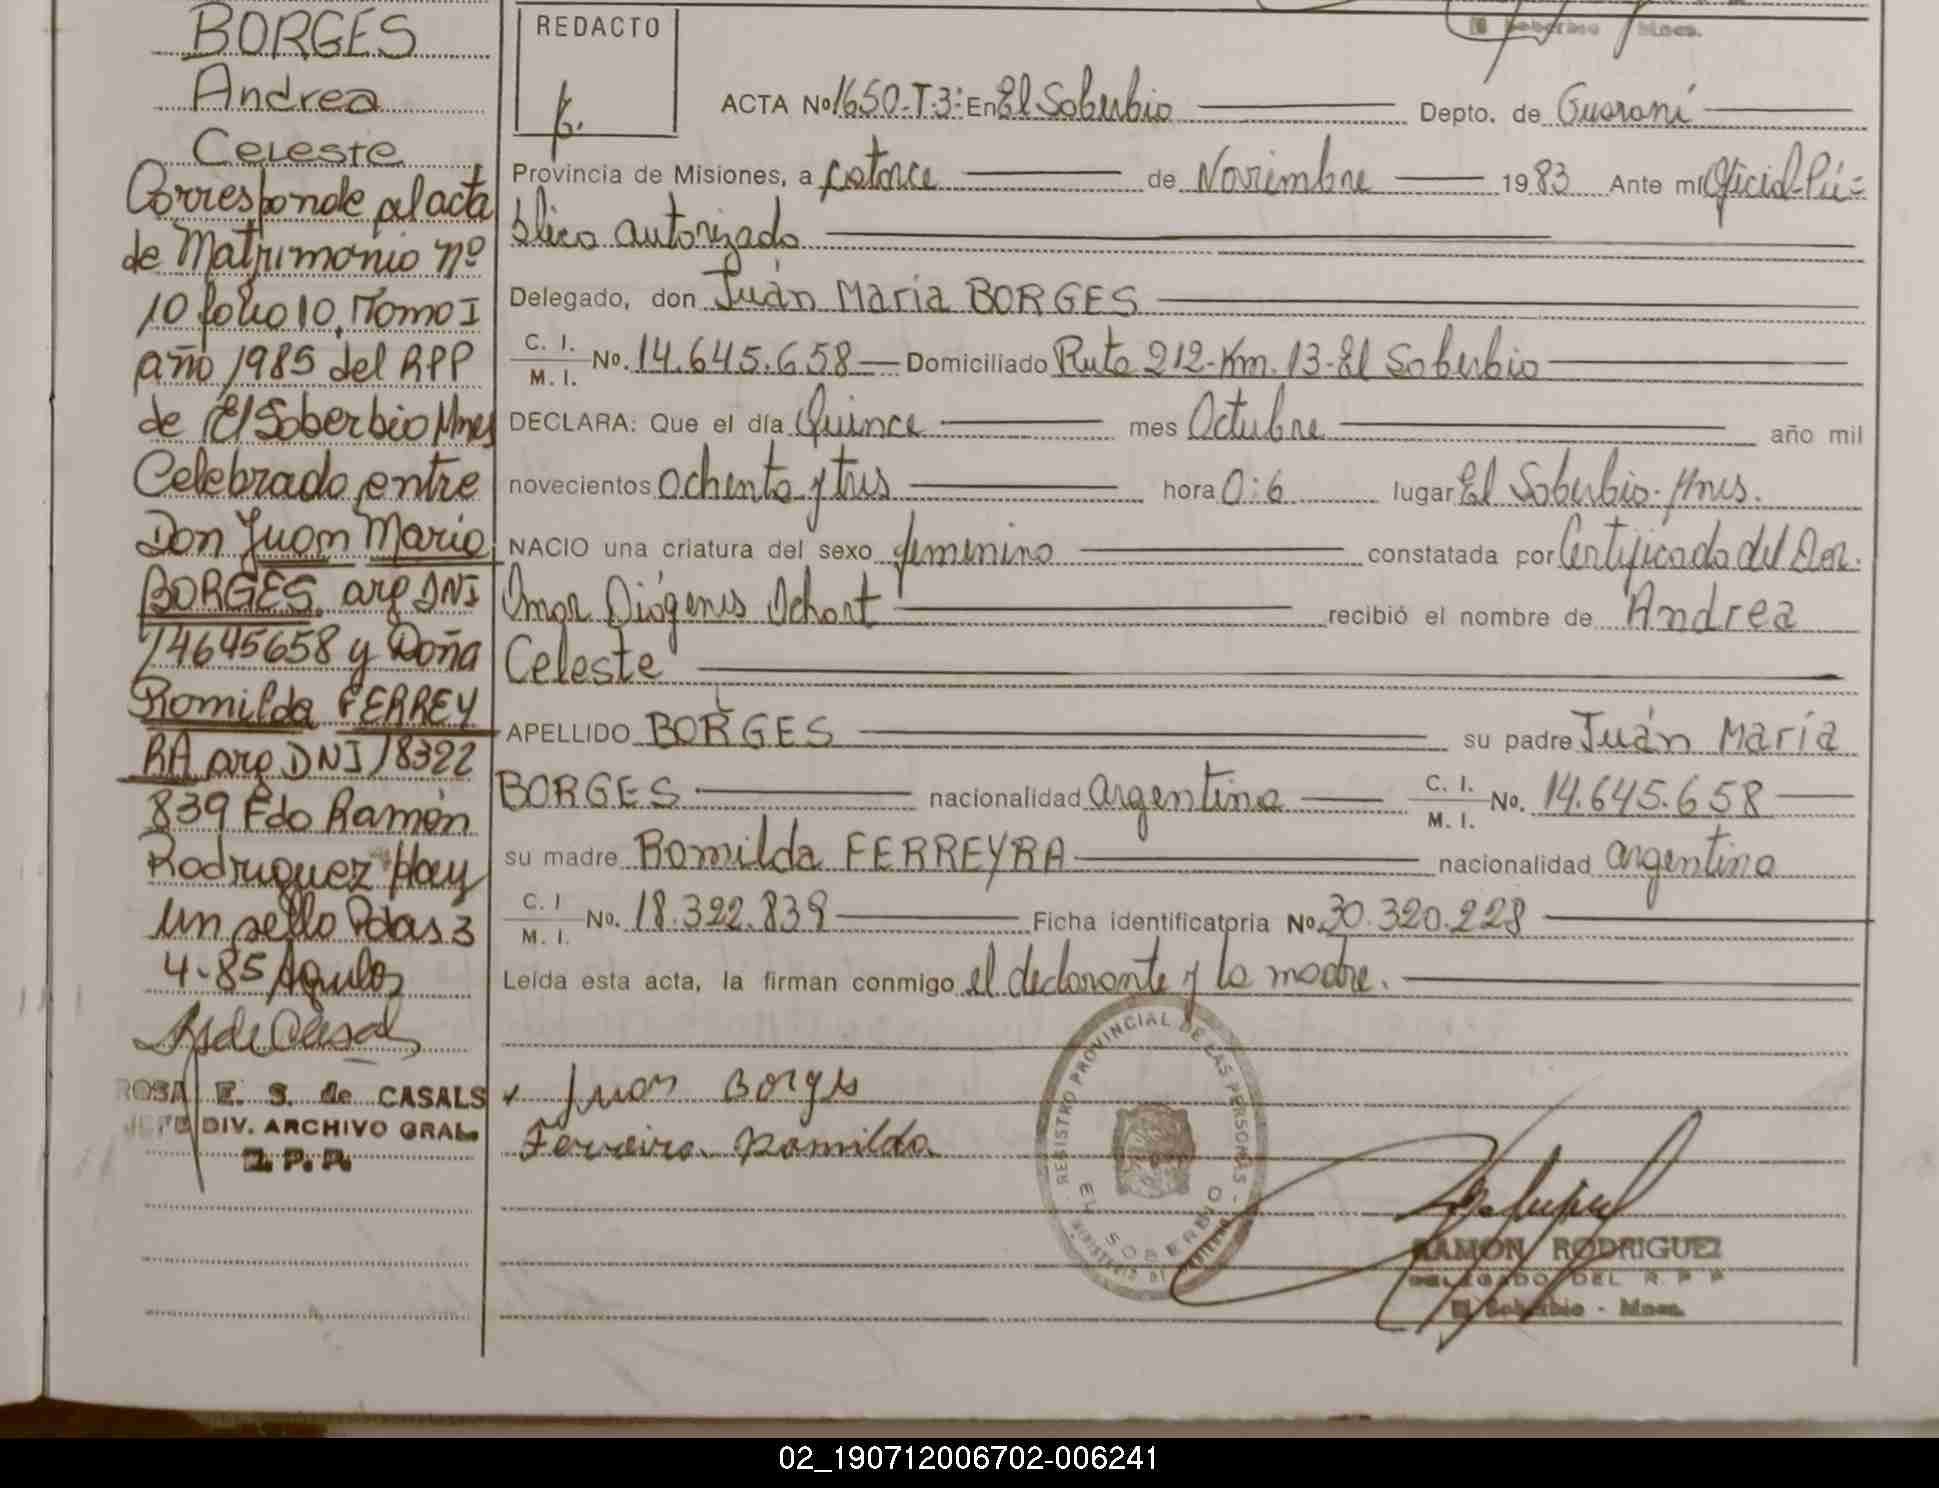 BORGES
Andrea
Celeste
Corresponde al acta
de Matrimonio nº
10 folio 10, Tomo I
año 1985 del RPP
de El Soberbio Mnes
Celebrado entre
Don Juan Maria
BORGES, arg DNI
14645658 y Doña
Romilda FERREY
RA arg DNI 18322
839 Fdo Ramón
Rodriguez Hay
un sello Pdas 3
4-85
ROSA E. S. de CASALS
JEFE DIV. ARCHIVO GRAL.
R. P. P.
El Soberbio Mnes.
REDACTO
ACTA Nº 1650-T.3: En El Soberbio Depto. de Guaraní
Provincia de Misiones, a catorce de Noviembre 1983 Ante mi Oficial Pú=
blico autorizado
Delegado, don Juán María BORGES
C. I.
M. I. No. 14.645.658 Domiciliado Ruta 212-Km. 13-El Soberbio
DECLARA: Que el día Quince mes Octubre año mil
novecientos ochenta y tres hora 0:6 lugar El Soberbio-Mnes.
NACIO una criatura del sexo femenino constatada por Certificado del Dor.
Omar Diógenes Ochart recibió el nombre de Andrea
Celeste
APELLIDO BORGES su padre Juán María
BORGES nacionalidad argentina C. I.
M. I. No. 14.645.658
su madre Romilda FERREYRA nacionalidad argentina
C. I
M. I. No. 18.322.839 Ficha identificatoria No. 30.320.228
Leída esta acta, la firman conmigo el declarante y la madre.
Juan Borges
Ferreira Romilda
REGISTRO PROVINCIAL DE LAS PERSONAS
EL SOBERBIO
RAMON RODRIGUEZ
DELEGADO DEL R. P. P
El Soberbio - Mnes.
02_190712006702-006241